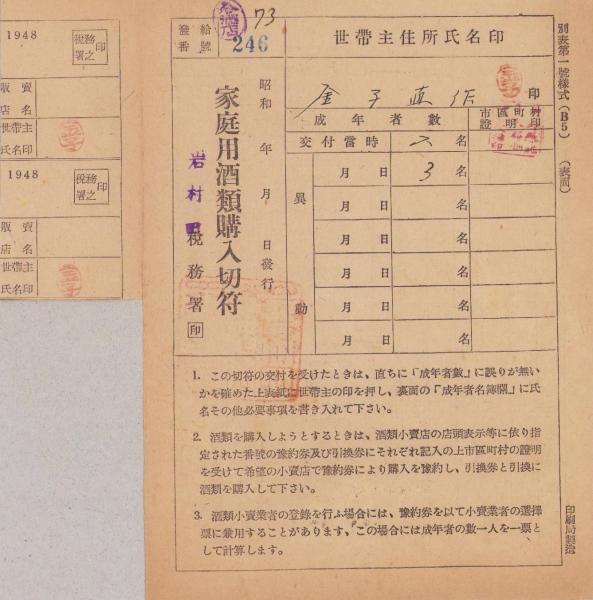 73
發給
番號
246
世帶主住所氏名印
金子直作 印
成年者數
市區町村
證明印
交付當時 六名
異動
月 日 3 名
月 日 名
月 日 名
月 日 名
月 日 名
月 日 名
昭和 年 月 日發行
家庭用酒類購入切符
岩村田
税務署印
1. この切符の交付を受けたときは、直ちに「成年者數」に誤りが無い
かを確めた上表紙に世帶主の印を押し、裏面の「成年者名簿欄」に氏
名その他必要事項を書き入れて下さい。
2. 酒類を購入しようとするときは、酒類小賣店の店頭表示等に依り指
定された番號の豫約券及び引換券にそれぞれ記入の上市區町村の證明
を受けて希望の小賣店で豫約券により購入を豫約し、引換券と引換に
酒類を購入して下さい。
3. 酒類小賣業者の登錄を行ふ場合には、豫約券を以て小賣業者の選擇
票に兼用することがあります、この場合には成年者の數一人を一票と
して計算します。
別表第一號樣式(B5) (表面)
印刷局製造
1948
税務署之印
販賣
店名
世帶主
氏名印
金子
1948
税務署之印
販賣
店名
世帶主
氏名印
金子